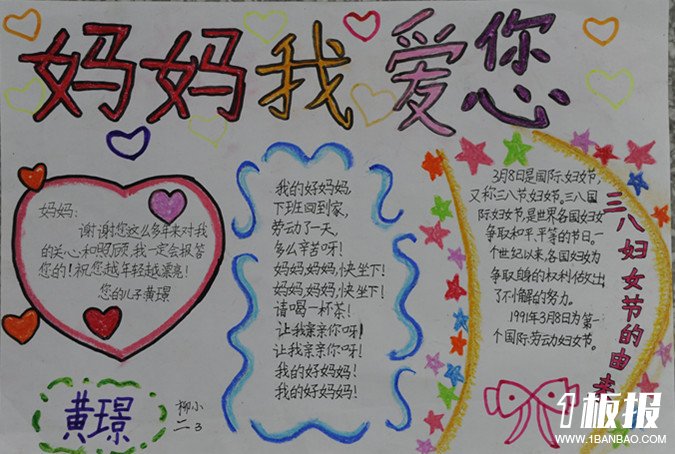 妈妈我爱您
妈妈:
谢谢您这么多年来对我
的关心和照顾,我一定会报答
您的!祝您越年轻越漂亮!
您的儿子黄璟
我的好妈妈,
下班回到家,
劳动了一天,
多么辛苦呀!
妈妈,妈妈,快坐下!
妈妈,妈妈,快坐下!
请喝一杯茶!
让我亲亲你呀!
让我亲亲你呀!
我的好妈妈!
我的好妈妈!
3月8日是国际妇女节,
又称三八节,妇女节。三八国
际妇女节,是世界各国妇女
争取和平、平等的节日。一
个世纪以来,各国妇女为
争取自身的权利做出
了不懈的努力。
1991年3月8日为第一
个国际劳动妇女节。
三八妇女节的由来
黄璟
柳小
二3
1板报
WWW.1BANBAO.COM